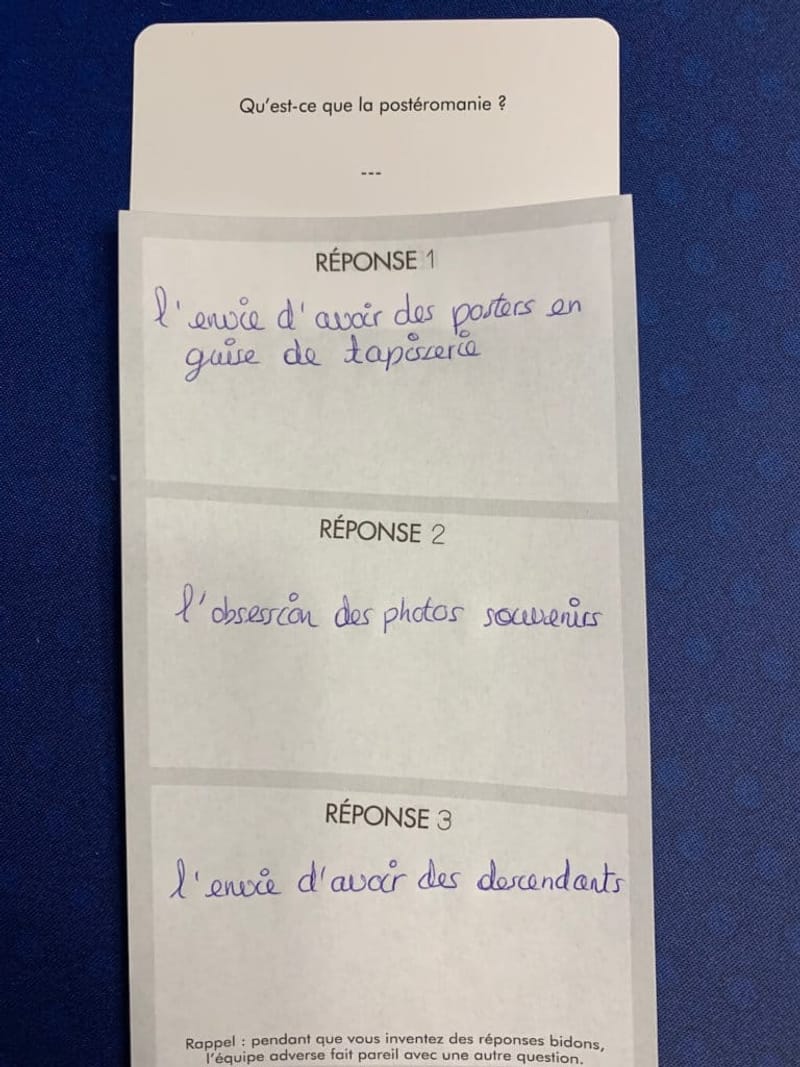 Qu'est-ce que la postéromanie ?
---
RÉPONSE 1
l'envie d'avoir des posters en
guise de tapisserie
RÉPONSE 2
l'obsession des photos souvenirs
RÉPONSE 3
l'envie d'avoir des descendants
Rappel : pendant que vous inventez des réponses bidons,
l'équipe adverse fait pareil avec une autre question.